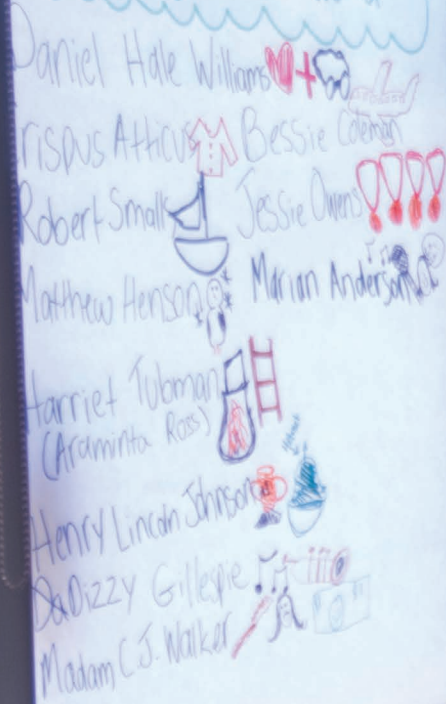 Daniel Hale Williams
rispus Atticus Bessie Coleman
Robert Smalls Jessie Owens
Matthew Henson Marian Anderson
Harriet Tubman
(Araminta Ross)
Henry Lincoln Johnson
DaDizzy Gillespie
Madam C.J. Walker